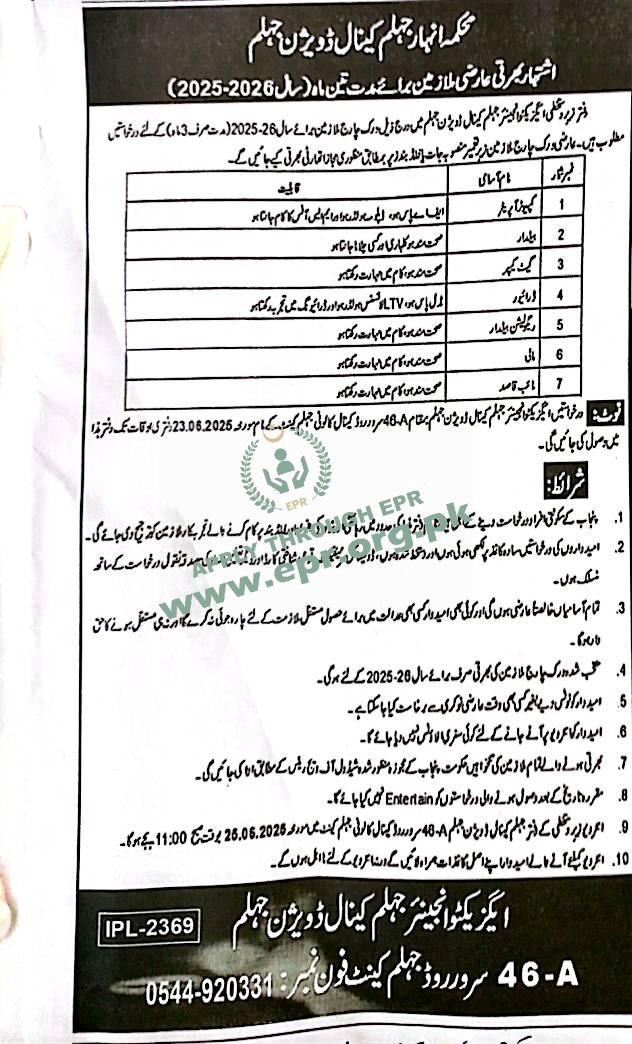 محکمہ انہار جہلم کینال ڈویژن جہلم
اشتہار بھرتی عارضی ملازمین برائے مدت تین ماہ (سال 2026-2025)
دفتر زیر دستخطی ایگزیکٹو انجینئر جہلم کینال ڈویژن جہلم میں درج ذیل ورک چارج ملازمین برائے سال 26-2025 (مدت صرف 3 ماہ) کے لئے درخواستیں
مطلوب ہیں۔ عارضی ورک چارج ملازمین زیر تعمیر منصوبہ جات بمطابق منظوری مجاز اتھارٹی بھرتی کیے جائیں گے۔
نمبر شمار نام آسامی قابلیت
1 کمپیوٹر آپریٹر ایف اے پاس ہو، ڈپلومہ ہولڈر ہو اور ایم ایس آفس کا کام جانتا ہو
2 بیلدار صحت مند ہو کلہاڑی اور کسی چلانا جانتا ہو
3 گیٹ کیپر صحت مند ہو، کام میں مہارت رکھتا ہو
4 ڈرائیور مڈل پاس ہو، LTV لائسنس ہولڈر ہو اور ڈرائیونگ میں تجربہ رکھتا ہو
5 ریگولیشن بیلدار صحت مند ہو، کام میں مہارت رکھتا ہو
6 مالی صحت مند ہو، کام میں مہارت رکھتا ہو
7 نائب قاصد صحت مند ہو، کام میں مہارت رکھتا ہو
نوٹ: درخواستیں ایگزیکٹو انجینئر جہلم کینال ڈویژن جہلم بمقام 46-A سرور روڈ کینال کالونی جہلم کینٹ کے نام مورخہ 23.06.2025 دفتری اوقات تک دفتر ہذا
میں وصول کی جائیں گی۔
شرائط:
EPR
APPLY THROUGH EPR
www.epr.org.pk
1. پنجاب کے سکونتی افراد درخواست دینے کے کام کرنے والے تجربہ کار ملازمین کو ترجیح دی جائے گی۔
2. امیدواروں کی درخواستیں سادہ کاغذ پر لکھی ہوئی ہوں اور دستخط شدہ ہوں، ڈومیسائل شناختی کارڈ اور کی مصدقہ نقول درخواست کے ساتھ
منسلک ہوں۔
3. تمام آسامیاں خالصتاً عارضی ہوں گی اور کوئی بھی امیدوار کسی بھی عدالت میں برائے حصول مستقل ملازمت کے لئے چارہ جوئی نہ کرے گا اور نہ ہی مستقل ہونے کا حق
دار ہوگا۔
4. منتخب شدہ ورک چارج ملازمین کی بھرتی صرف برائے سال 26-2025 کے لئے ہوگی۔
5. امیدوار کو نوٹس دیے بغیر کسی بھی وقت عارضی نوکری سے برخاست کیا جا سکتا ہے۔
6. امیدوار کا انٹرویو پر آنے جانے کے لئے کوئی سفری الاؤنس نہیں دیا جائے گا۔
7. بھرتی ہونے والے تمام ملازمین کی تنخواہیں حکومت پنجاب کے مجوزہ و منظور شدہ شیڈول آف ویجز ریٹس کے مطابق ادا کی جائیں گی۔
8. مقررہ تاریخ کے بعد وصول ہونے والی درخواستوں کو Entertain نہیں کیا جائے گا۔
9. انٹرویو زیر دستخطی کے دفتر جہلم کینال ڈویژن جہلم 46-A سرور روڈ کینال کالونی جہلم کینٹ میں مورخہ 25.06.2025 بوقت صبح 11:00 بجے ہوگا۔
10. انٹرویو کیلئے آنے والے امیدوار اپنے اصل کاغذات ہمراہ لائیں گے ورنہ انٹرویو کے لئے نااہل ہوں گے۔
ایگزیکٹو انجینئر جہلم کینال ڈویژن جہلم
IPL-2369
46-A سرور روڈ جہلم کینٹ فون نمبر: 0544-920331